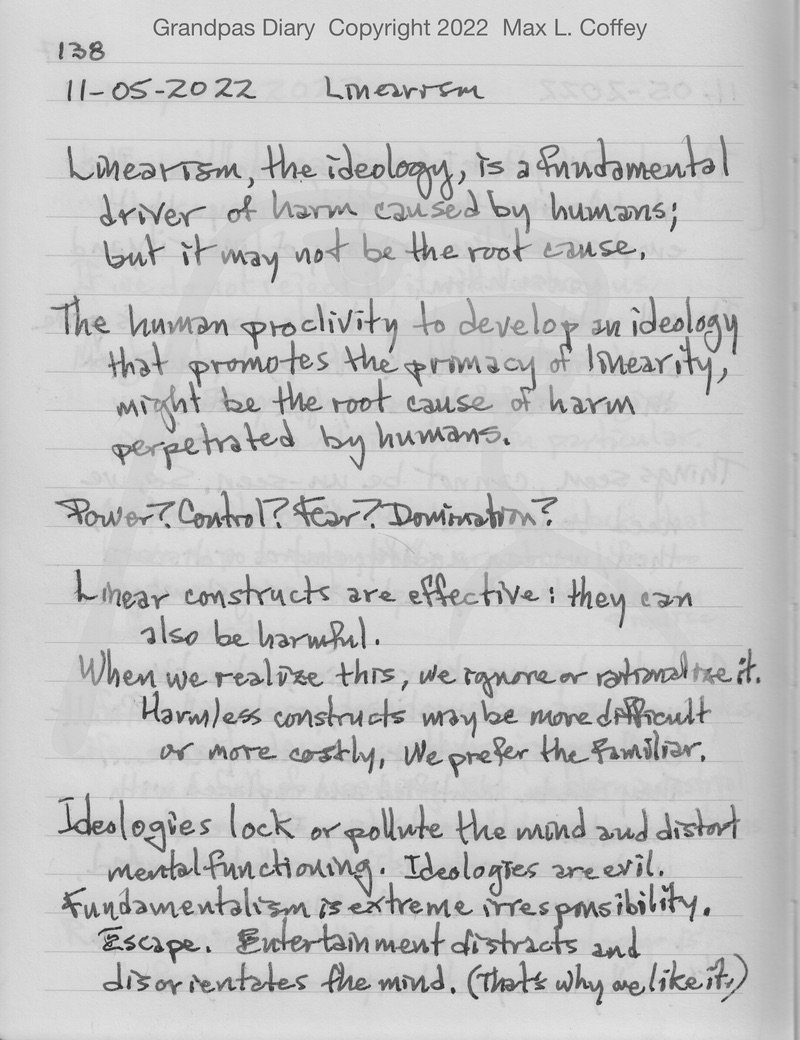 Grandpas Diary Copyright 2022 Max L. Coffey
138
11-05-2022 Linearism
Linearism, the ideology, is a fundamental
driver of harm caused by humans;
but it may not be the root cause.
The human proclivity to develop an ideology
that promotes the primacy of linearity,
might be the root cause of harm
perpetrated by humans.
Power? Control? Fear? Domination?
Linear constructs are effective: they can
also be harmful.
When we realize this, we ignore or rationalize it.
Harmless constructs may be more difficult
or more costly, We prefer the familiar.
Ideologies lock or pollute the mind and distort
mental functioning. Ideologies are evil.
Fundamentalism is extreme irresponsibility.
Escape. Entertainment distracts and
disorientates the mind. (That's why we like it.)